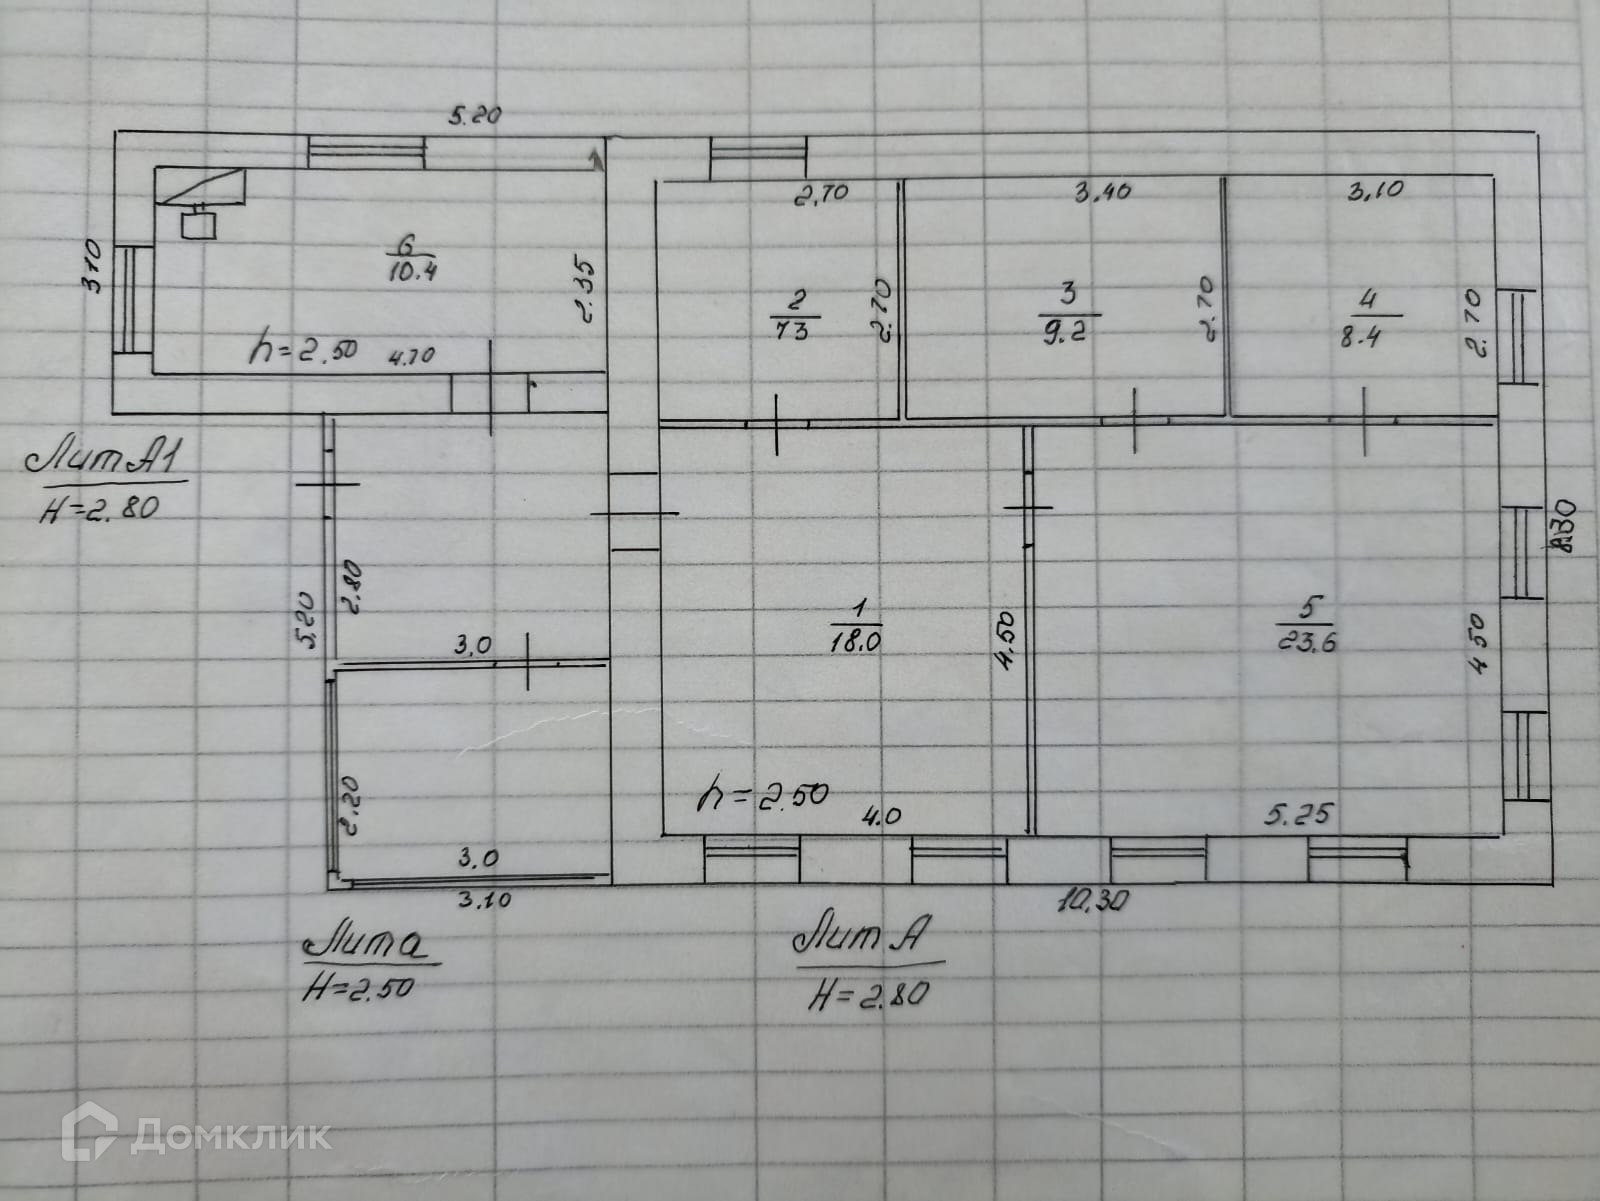 5.20
3.10
6
10.4
2.35
h=2.50
4.70
2,70
2
73
2.70
3,40
3
9.2
2.70
3,10
4
8.4
2.70
Лит А1
H=2.80
5.20
2.80
3,0
2.20
3,0
3.10
1
18.0
4.50
h=2.50
4.0
5
23.6
4.50
5.25
10,30
Лит а
H=2.50
Лит А
H=2.80
Домклик